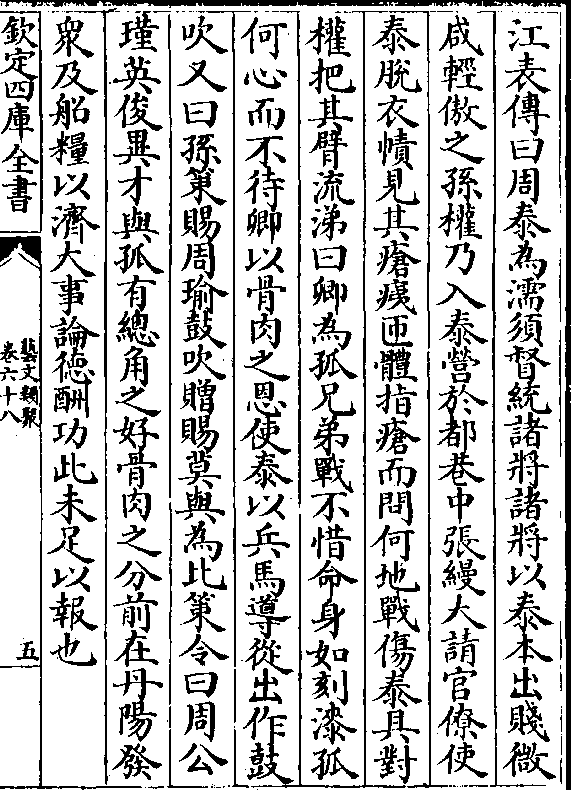 江表傳曰周泰為濡須督統諸將諸將以泰本出賤微
咸輕傲之孫權乃入泰營於都巷中張縵大請官僚使
泰脫衣幘見其瘡痍匝體指瘡而問何地戰傷泰具對
權把其臂流涕曰卿為孤兄弟戰不惜命身如刻漆孤
何心而不待卿以骨肉之恩使泰以兵馬導從出作鼓
吹又曰孫策賜周瑜鼓吹贈賜莫與為比策令曰周公
瑾英俊異才與孤有總角之好骨肉之分前在丹陽發
衆及船糧以濟大事論德酬功此未足以報也
欽定四庫全書
藝文類聚
卷六十八
五